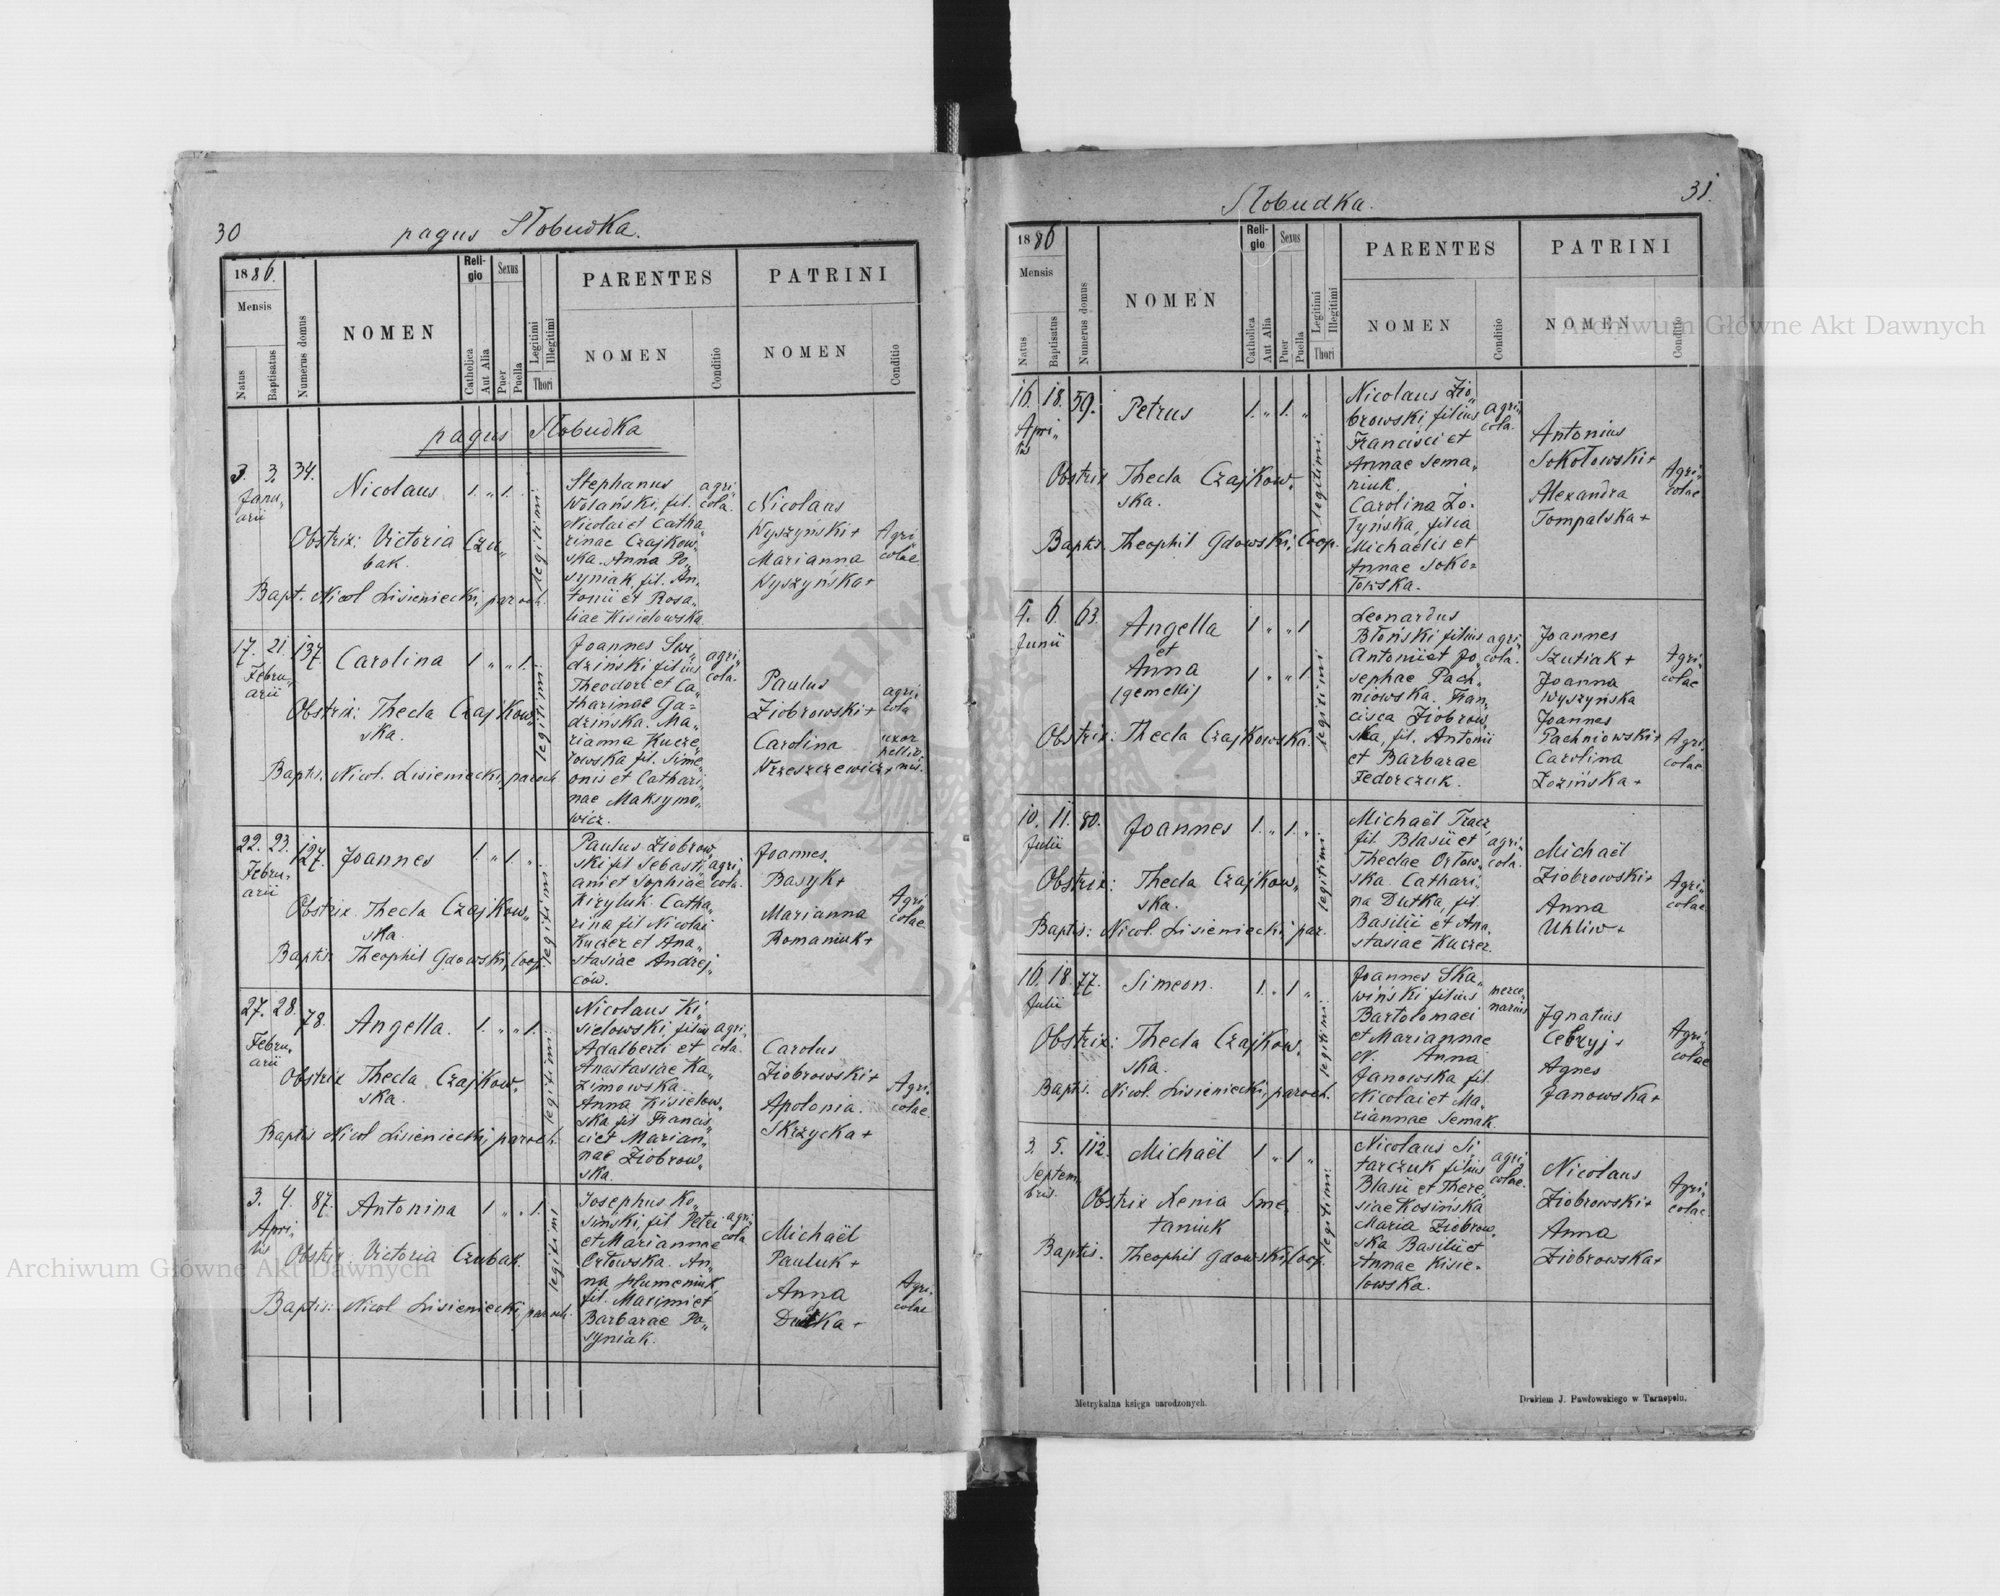 30
pagus Słobudka.
1886.
Mensis
Natus
Baptisatus
Numerus domus
NOMEN
Religio
Catholica
Aut Alia
Sexus
Puer
Puella
Legitimi
Illegitimi
Thori
PARENTES
NOMEN
Conditio
PATRINI
NOMEN
Conditio
pagus Słobudka
3. 3. 34.
Janu„
arii
Nicolaus. 1. „ 1. „
Obstrix: Victoria Czu„
bak.
Bapt. Nicol Lisieniecki, paroch.
legitimi
Stephanus
Wolański, fil.
Nicolai et Catha„
rinae Czajkow„
ska. Anna Po„
syniak, fil. An„
tonii et Rosa„
liae Kisielowska.
agri„
cola.
Nicolaus
Wyszyński+
Marianna
Wyszyńska+
Agri
colae
17. 21. 137
Febru„
arii
Carolina 1 „ „ 1.
Obstrix: Thecla Czajkow„
ska.
Baptis. Nicol. Lisieniecki, paroch
legitimi
Joannes
dziński filius
Theodori et Ca„
tharinae Ga„
dzińska. Ma„
rianna Kucze„
towska fil. Sime„
onis et Cathari„
nae Maksymo„
wicz.
agri„
cola.
Paulus
Ziobrowski+
Carolina
Wrzeszczewicz+
agri„
cola
uxor
pellio
nis.
22. 23. 127.
Febru„
arii
Joannes 1. „ 1. „
Obstrix Thecla Czajkow„
ska.
Baptis Theophil Gdowski, Coop.
legitimi
Paulus Ziobrow
ski fil Sebasti„
ani et Sophiae
Kiryluk. Catha„
rina fil Nicolai
Kuczer et Ana„
stasiae Andrej„
ców.
agri„
cola.
Joannes.
Basyk+
Marianna
Romaniuk+
Agri„
colae
27. 28. 78.
Febru„
arii
Angella. 1. „ „ 1.
Obstrix Thecla Czajkow„
ska.
Baptis Nicol Lisieniecki, paroch.
legitimi
Nicolaus Ki„
sielowski, filius
Adalberti et
Anastasiae Ka„
zimowska.
Anna Kisielow„
ska fil Francis„
ci et Marian„
nae Ziobrow„
ska.
agri„
cola.
Carolus
Ziobrowski+
Apolonia.
Skrzycka+
Agri„
colae.
3. 4. 87.
Apri„
lis
Antonina 1 „ „ 1.
Obstrix Victoria Czubak.
Baptis: Nicol Lisieniecki, paroch.
legitimi
Josephus Ko„
siński, fil Petri
et Mariannae
Ortowska. An„
na Humeniuk
fil. Maximi et
Barbarae Po„
syniak.
agri„
cola
Michaël
Pauluk+
Anna
Dutka+
Agri„
colae
Słobudka.
31.
1886
Mensis
Natus
Baptisatus
Numerus domus
NOMEN
Religio
Catholica
Aut Alia
Sexus
Puer
Puella
Legitimi
Illegitimi
Thori
PARENTES
NOMEN
Conditio
PATRINI
NOMEN
Conditio
16. 18. 59.
Apri„
lis
Petrus 1. „ 1. „
Obstrix Thecla Czajkow„
ska.
Baptis. Theophil Gdowski, Coop.
legitimi.
Nicolaus Zio„
browski, filius
Francisci et
Annae Sema„
niuk.
Carolina Zo„
tyńska, filia
Michaëlis et
Annae Soko„
towska.
agri„
cola.
Antonius
Sokołowski+
Alexandra
Tompalska+
Agri„
colae
4. 6. 63.
Junii
Angella 1 „ „ 1
et
Anna 1 „ „ 1
(gemelli)
Obstrix: Thecla Czajkowska.
legitimi
Leonardus
Błoński filius
Antonii et Jo„
sephae Pach„
niowska. Fran„
cisca Ziobrow„
ska, fil. Antonii
et Barbarae
Fedorczuk.
agri„
cola.
Joannes
Szutiak+
Joanna
Wyszyńska
Joannes
Pachniowski+
Carolina
Zozińska+
Agri„
colae
Agri„
colae.
10. 11. 80.
Julii
Joannes 1. „ 1. „
Obstrix: Thecla Czajkow„
ska.
Baptis: Nicol. Lisieniecki, par.
legitimi
Michaël Tracz,
fil. Blasii et
Theclae Ortow„
ska. Cathari„
na Dutka, fil
Basilii et Ana„
stasiae Kuczer.
agri„
cola.
Michaël
Ziobrowski+
Anna
Uhliw+
Agri„
colae
16. 18. 77.
Julii
Simeon. 1. „ 1 „
Obstrix: Thecla Czajkow„
ska.
Baptis. Nicol. Lisieniecki, paroch.
legitimi
Joannes Ska„
wiński filius
Bartolomaei
et Mariannae
N. Anna
Janowska fil.
Nicolai et Ma„
riannae Semak.
merce„
narius
Ignatius
Cebryj+
Agnes
Janowska+
Agri„
colae
3. 5. 112.
Septem„
bris.
Michaël 1 „ 1 „
Obstrix Xenia Sme„
taniuk
Baptis. Theophil Gdowski, Coop.
legitimi
Nicolaus Si„
tarczuk filius
Blasii et There„
siae Kosińska
Maria Ziobrow„
ska Basilii et
Annae Kisie„
lowska.
agri„
colae.
Nicolaus
Ziobrowski+
Anna
Ziobrowska+
Agri„
colae
Metrykalna księga narodzonych.
Drukiem J. Pawłowskiego w Tarnopolu.
Archiwum Główne Akt Dawnych
Archiwum Główne Akt Dawnych